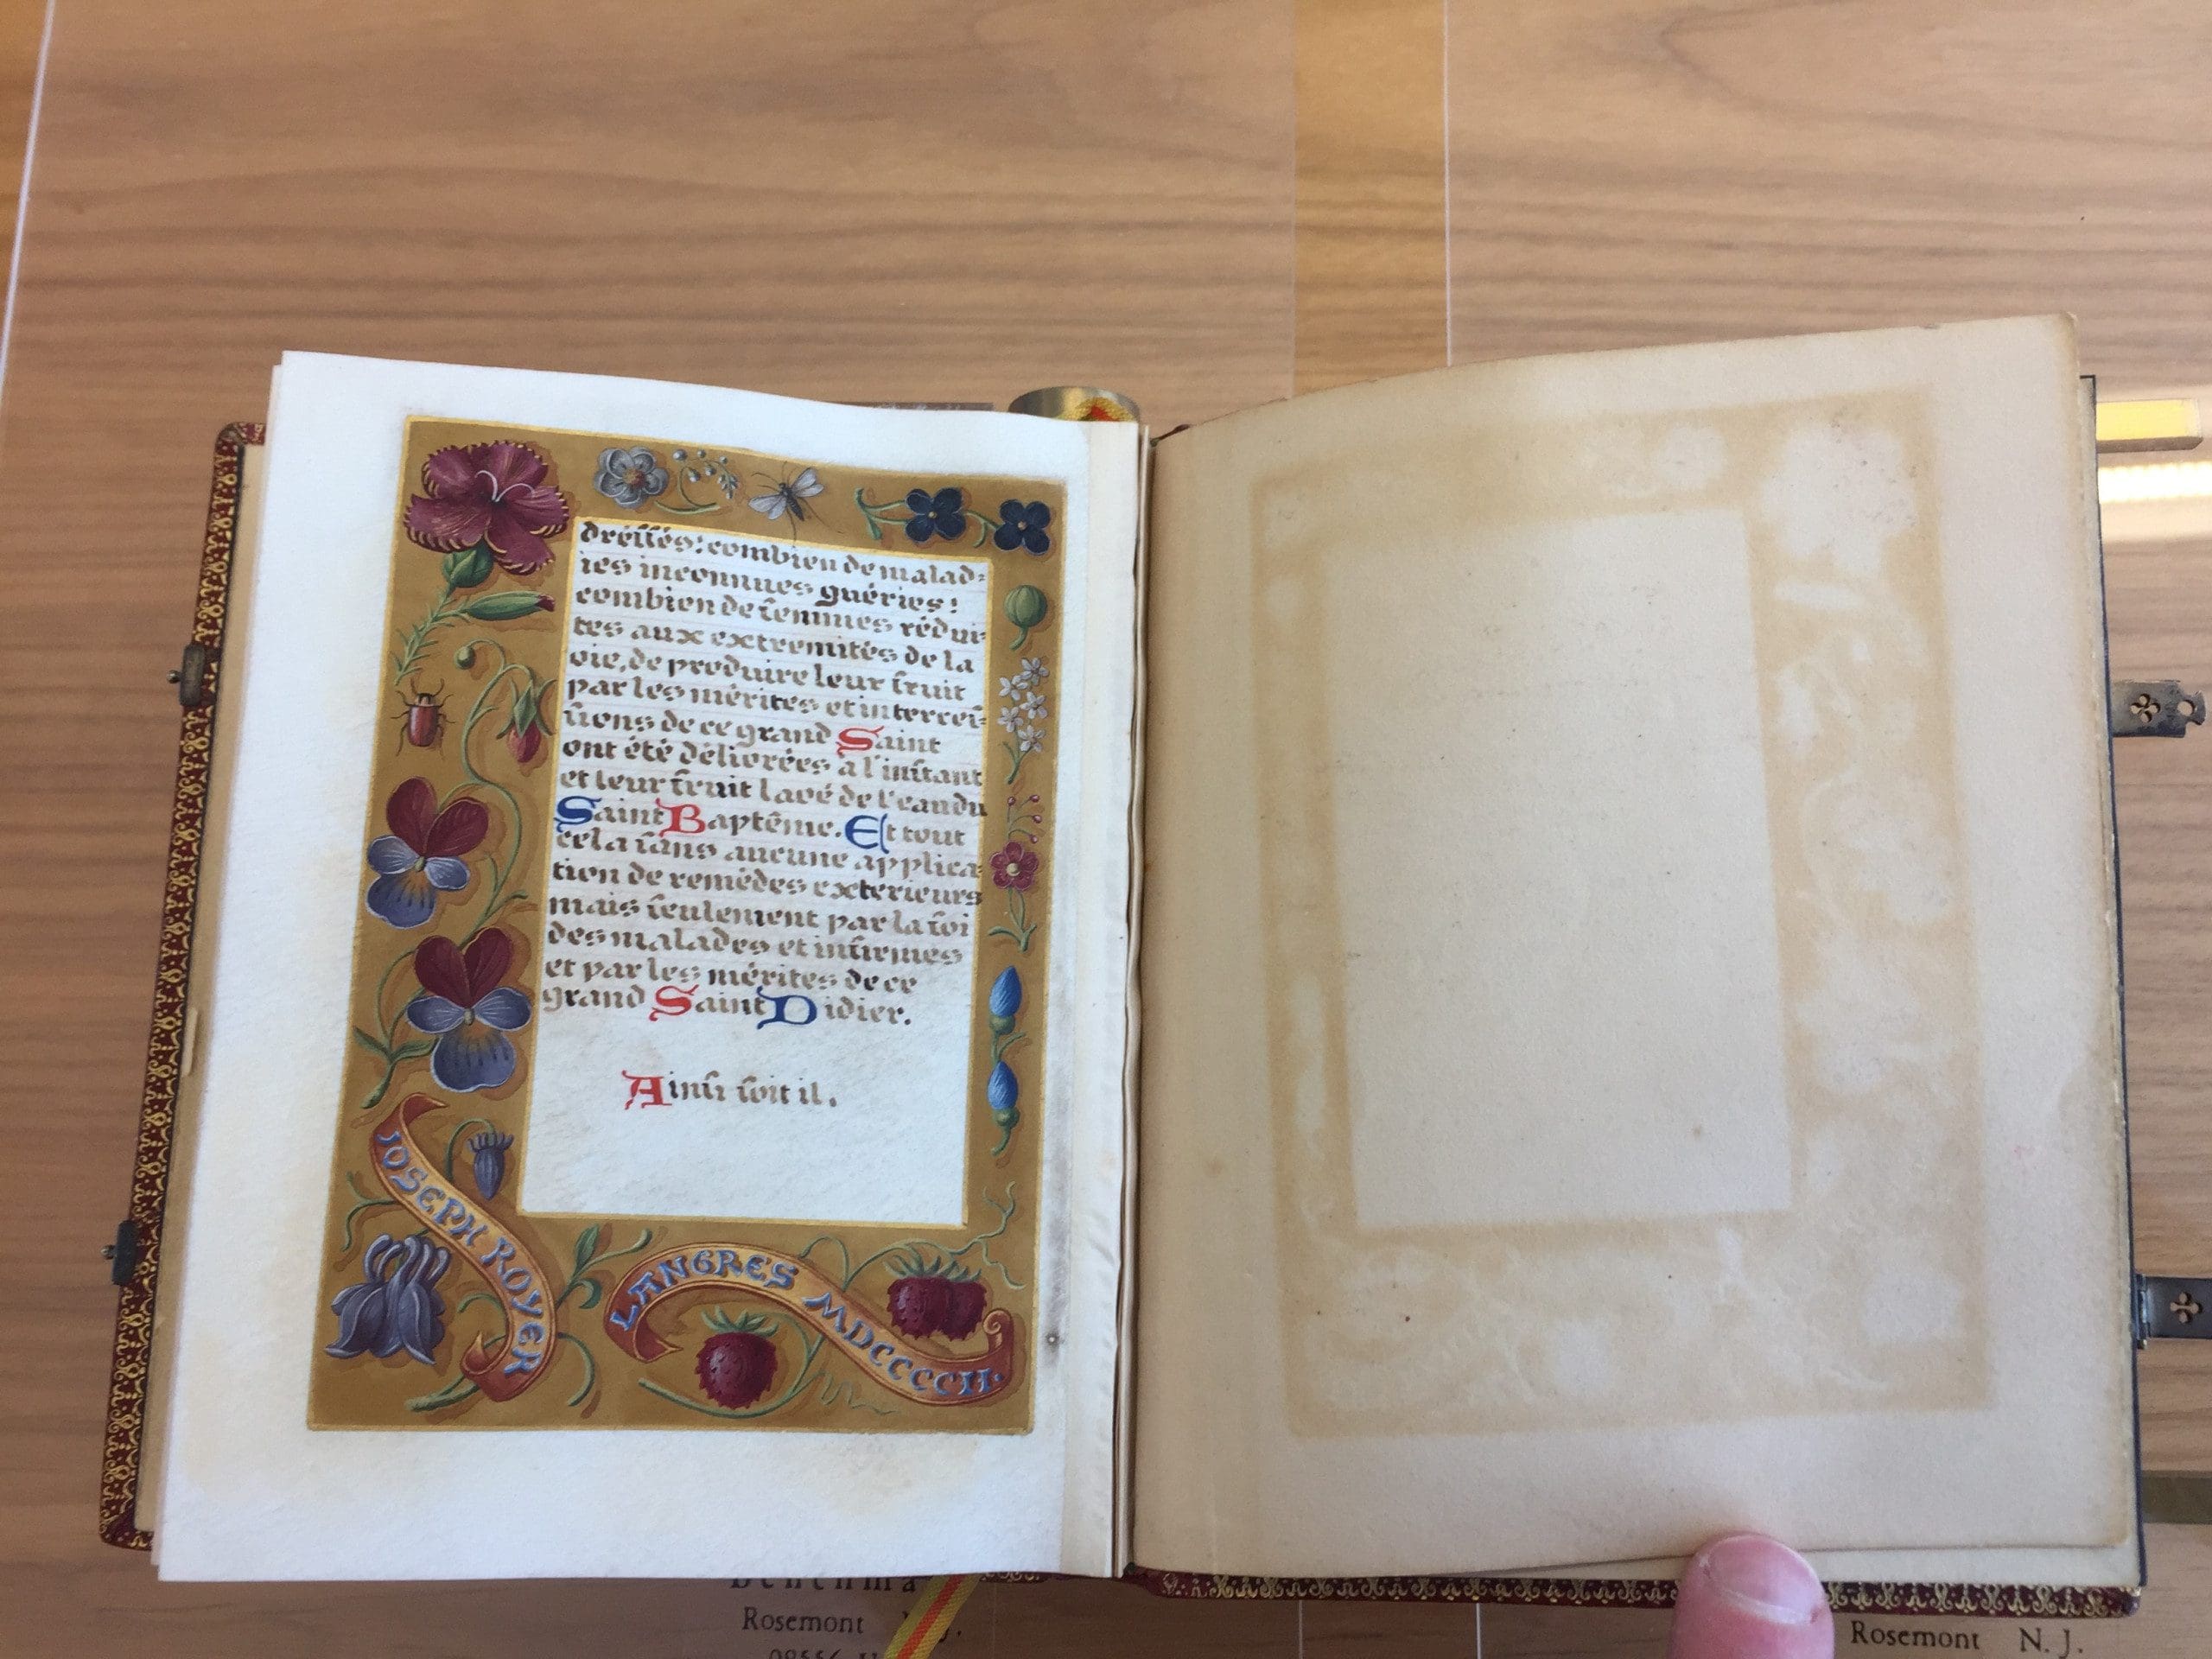 dréssés! combien de malad-
ies inconnues guéries!
combien de femmes rédui-
tes aux extremités de la
vie, de produire leur fruit
par les mérites et interces-
sions de ce grand Saint
ont été délivrées a l'instant
et leur fruit lavé de l'eau du
Saint Baptême. Et tout
cela sans aucune applica-
tion de remèdes exterieurs
mais seulement par la foi
des malades et infirmes
et par les mérites de ce
grand Saint Didier.
Ainsi soit il.
JOSEPH ROYER
LANGRES MDCCCCII.
Rosemont
Rosemont N.J.